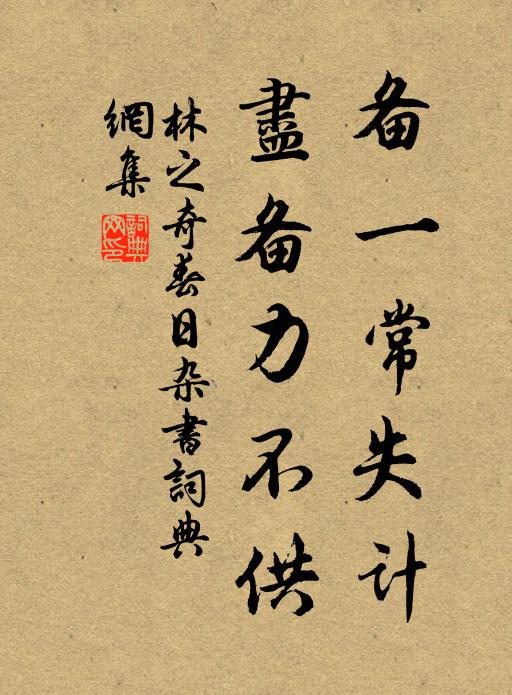 备一常失计
盡备力不供
林之奇春日杂書詞典
網集
詞典
网印